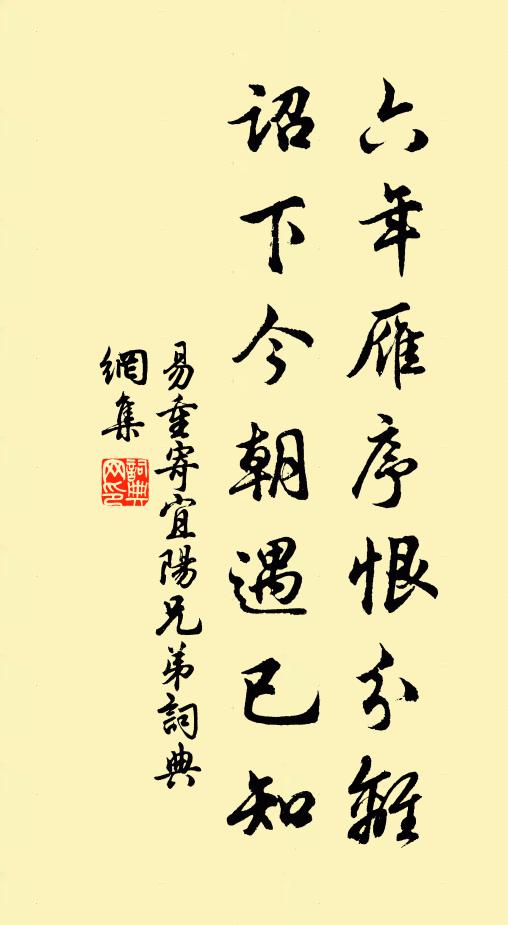 六年雁序恨分離
詔下今朝遇已知
易重寄宜陽兄弟詞典
網集
詞典
网印